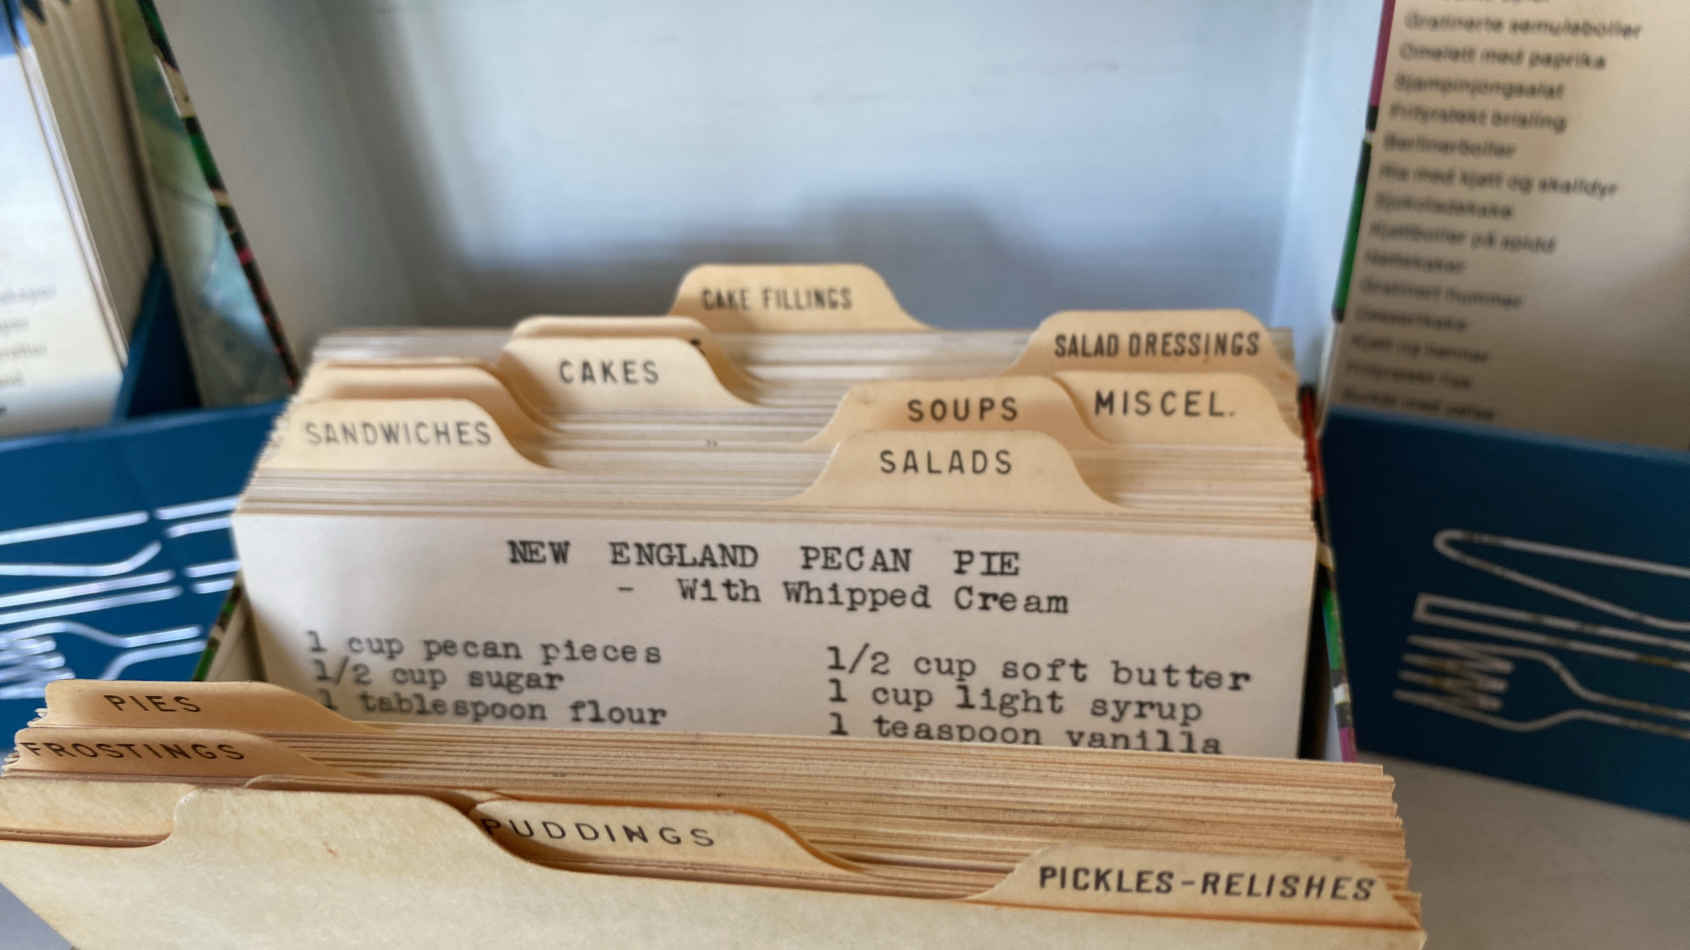 Gratinerte semuleboller
Omelett med paprika
Sjampinjongsalat
Frityrstekt brisling
Berlinerboller
Ris med kjøtt og skalldyr
Sjokoladekake
Kjøttboller på spidd
Nøttekaker
Gratinert hummer
Dessertkake
CAKE FILLINGS
SALAD DRESSINGS
CAKES
SOUPS
MISCEL.
SANDWICHES
SALADS
NEW ENGLAND PECAN PIE
- With Whipped Cream
1 cup pecan pieces
1/2 cup sugar
1 tablespoon flour
1/2 cup soft butter
1 cup light syrup
1 teaspoon vanilla
PIES
FROSTINGS
PUDDINGS
PICKLES-RELISHES